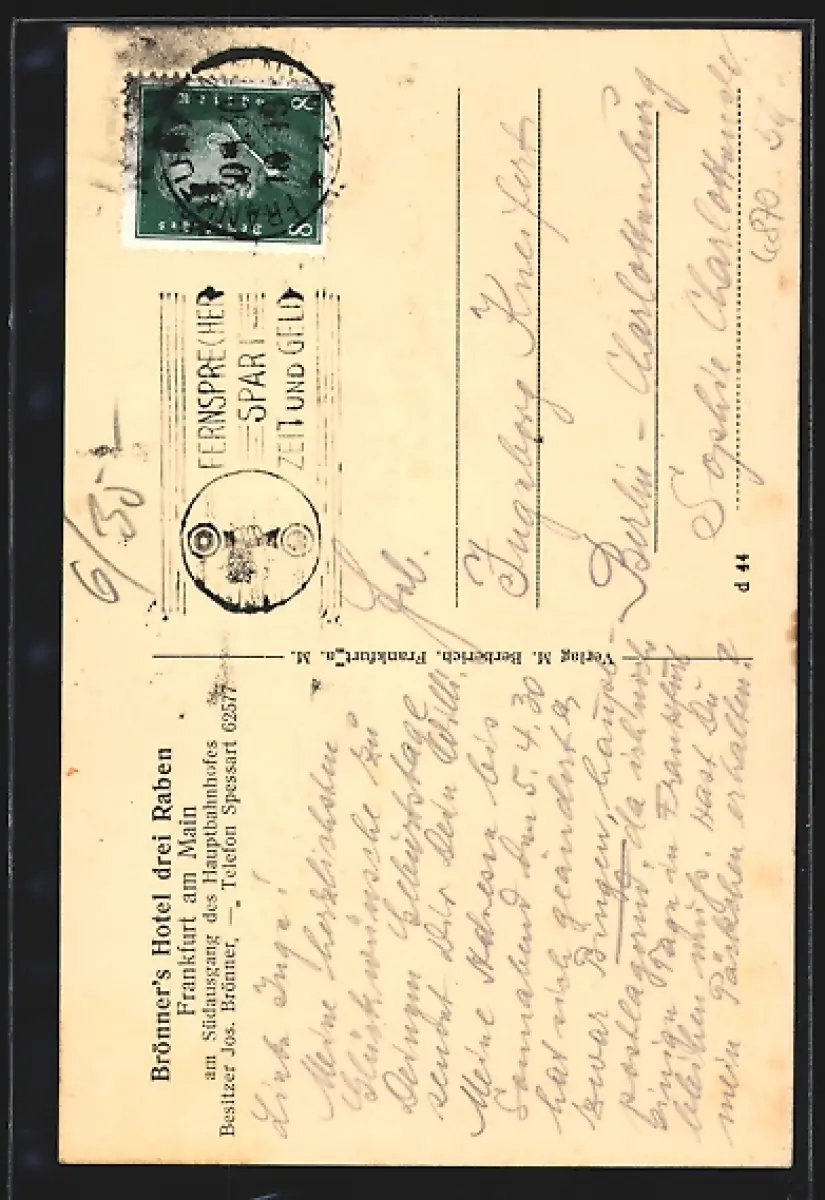 Brönner's Hotel drei Raben
Frankfurt am Main
am Südausgang des Hauptbahnhofes
Besitzer Jos. Brönner, — Telefon Spessart 62577
Liebe Inge!
Meine herzlichsten
Glückwünsche zu
Deinem Geburtstage
sendet Dir Dein Willi.
Meine Adresse bis
Sonnabend den 5.4.30
hat sich geändert
zwar Bingen, haupt-
postlagernd, da ich noch
einige Tage in Frankfurt
bleiben muß. Hast Du
mein Päckchen erhalten?
Verlag M. Berberich, Frankfurt a. M.
6/35
FRANKFURT
8
8
FERNSPRECHER
SPART
ZEIT UND GELD
Ingeborg Kneifert
Berlin – Charlottenburg
Sophie Charlottenstr
d 44